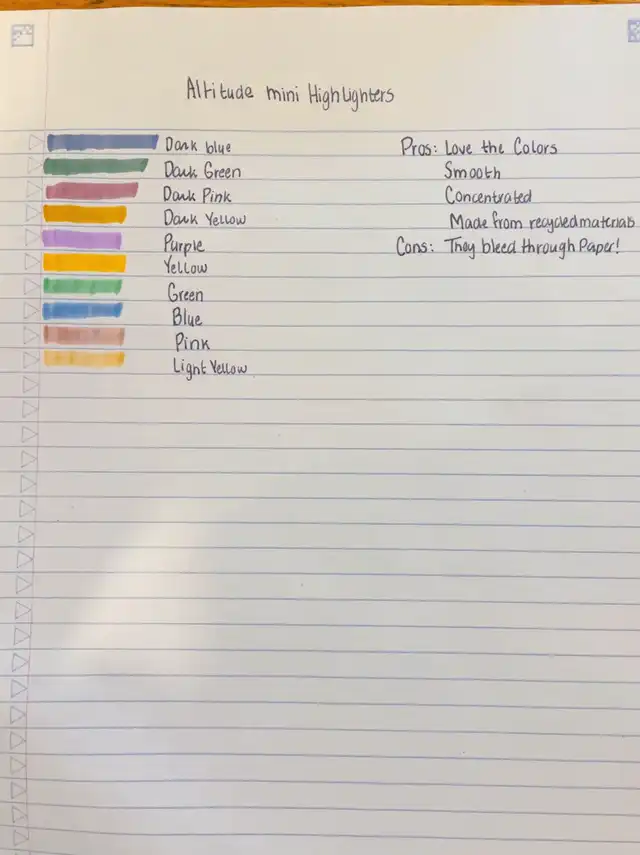 Altitude mini Highlighters
Dark blue
Dark Green
Dark Pink
Dark Yellow
Purple
Yellow
Green
Blue
Pink
Light Yellow
Pros: Love the Colors
Smooth
Concentrated
Made from recycled materials
Cons: They bleed through Paper!